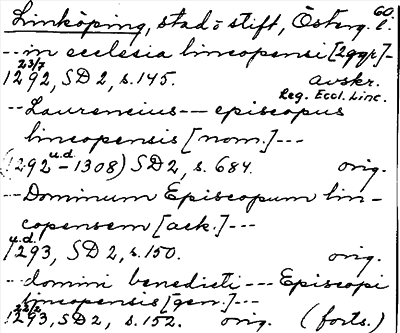 60.
Linköping, stad o stift, Österg. l.
-- in ecclesia lincopensi [2ggr] -
23/7
1292, SD 2, s. 145. avskr.
Reg. Eccl. Linc.
-- Laurencius -- episcopus
lincopensis [nom.] ---
u.d.
(1292 - 1308) SD 2, s. 684. orig.
-- Dominum Episcopum lin-
copensem [ack.] ---
u.d.
1293, SD 2, s. 150. orig.
-- domini benedicti --- Episcopi
lincopensis [gen.] ---
1293, SD 2, s. 152. orig. (forts.)